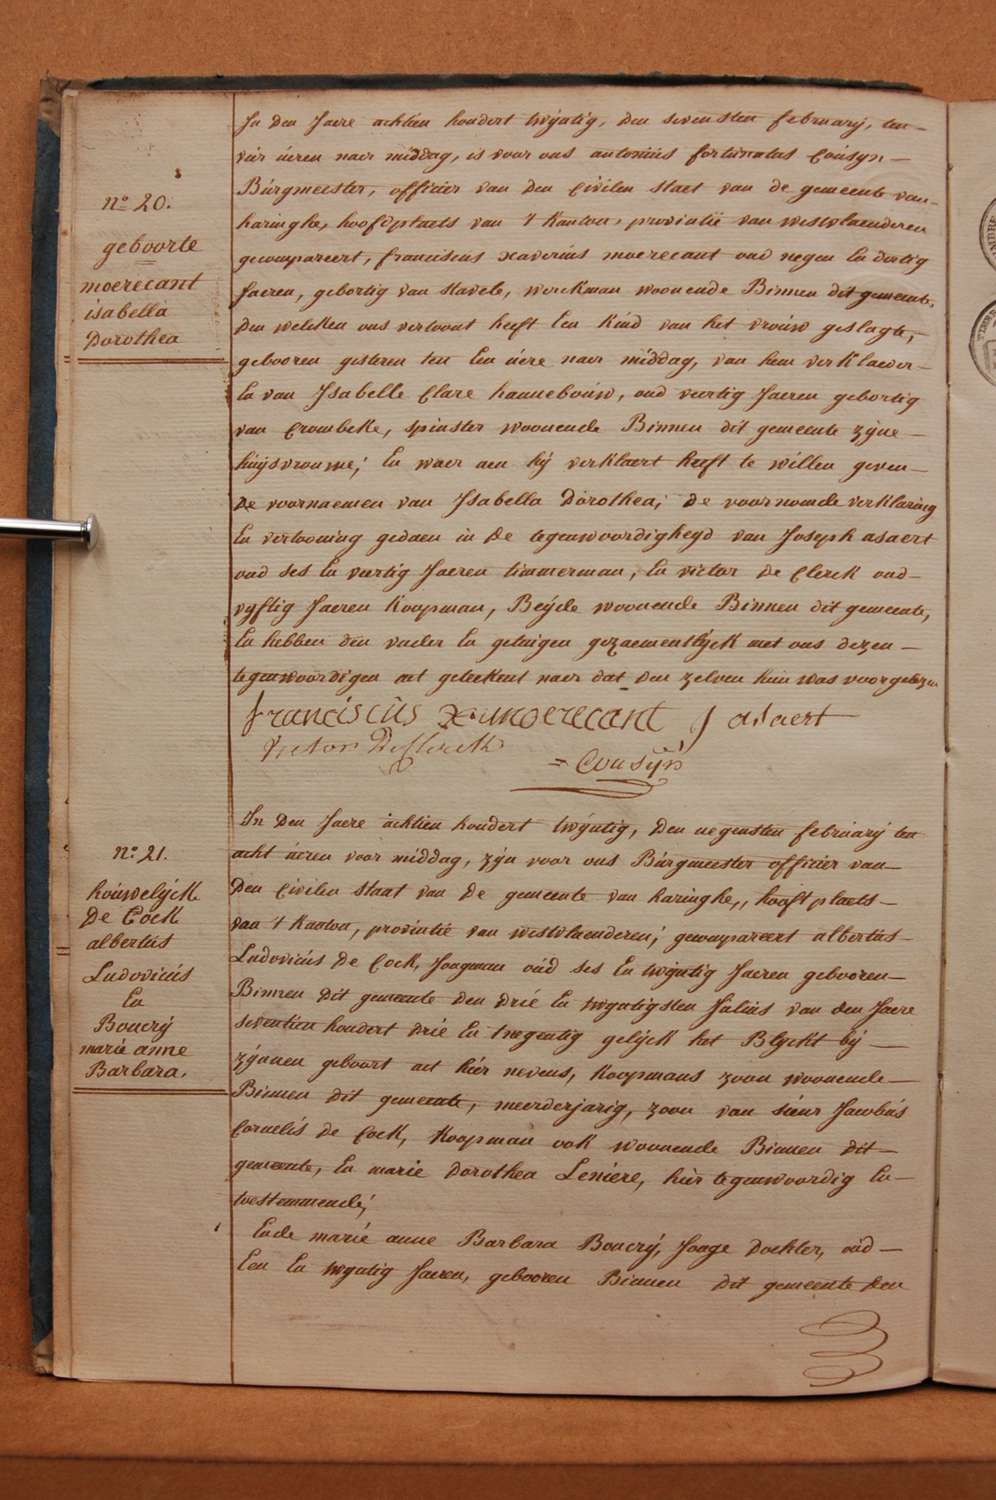 n.° 20.
geboorte
moerecant
isabella
Dorothea
In den Jaere achtien hondert twijntig, den sevensten february, ten
vier ueren naer middag, is voor ons antonius fortunatus Cousyn
Burgmeester, officier van den Civilen staet van de gemeente van
haringhe, hoofdplaets van 't Kanton, provintie van westvlaenderen
gecompareert, franciscus xaverius moerecant oud negen En dertig
Jaeren, gebortig van Stavele, werckman woonende Binnen dit gemeente,
den welcken ons vertoont heeft Een Kind van het vrouw geslagte,
gebooren gisteren ten Een uere naer middag, van hem verklaerer
En van Isabelle Clare hannebouw, oud veertig Jaeren gebortig
van Crombeke, spinster woonende Binnen dit gemeente zyne
huysvrouwe; En waer aen hy verklaert heeft te willen geven
De voornaemen van Isabella Dorothea; de voornoemde verklaring
En vertooning gedaen in de tegenwoordigheyd van Joseph asaert
oud ses En veertig Jaeren timmerman, En victor de Clerck oud
vyftig Jaeren Koopman, Beyde woonende Binnen dit gemeente,
En hebben den vader En getuigen gezaementlyck met ons dezen
tegenwoordigen act geteekent naer dat den zelven hun was voorgelezen
franciscus X. moerecant J asaert
Victor De Clerck
= Cousyn
n.° 21.
houwelyck
De Cock
albertus
Ludovicus
En
Boucry
marie anne
Barbara.
In Den Jaere achtien hondert twyntig, Den negensten february ten
acht ueren voor middag, zyn voor ons Burgmeester officier van
Den Civilen staat van de gemeente van haringhe,, hooft plaets
van 't Kanton, provintie van westvlaenderen; gecompareert albertus
Ludovicus De Cock, Jongman oud ses En twyntig Jaeren gebooren
Binnen dit gemeente den drie En twyntigsten Julius van den Jaere
seventien hondert drie En tnegentig gelyck het Blyckt by
zynnen geboort act hier nevens, Koopmans zoon woonende
Binnen dit gemeente, meerderjarig, zoon van sieur Jacobus
Cornelis de Cock, Koopman ook woonende Binnen dit
gemeente, En marie dorothea Leniere, hier tegenwoordig En
toestemmende;
Ende marie anne Barbara Boucry, Jonge Dochter, oud
Een En twyntig Jaeren, gebooren Binnen dit gemeente den